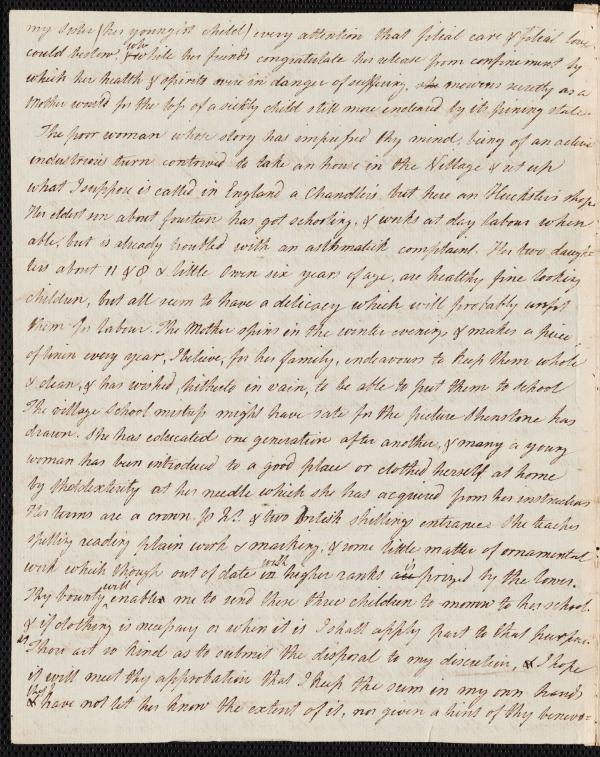 my Sister (her youngest child) every attention that filial care & filial love
could bestow, who while her friends congratulate her release from confinement by
which her health & spirits were in danger of suffering, she mourns secretly as a
Mother would for the loss of a sickly child still more endeared by its pining state.
The poor woman whose story has impressed thy mind, being of an active
industrious turn contrived to take an house in the Village & set up
what I suppose is called in England a Chandlers, but here an Hucksters shop.
Her eldest son about fourteen has got schooling, & works at day labour when
able, but is already troubled with an asthmatick complaint. Her two daugh-
ters about 11 & 8 & little Owen six years of age, are healthy fine looking
children, but all seem to have a delicacy which will probably unfit
them for labour. The Mother spins in the winter evenings & makes a piece
of linen every year, I believe, for her family, endeavours to keep them whole
& clean, & has wished, hitherto in vain, to be able to put them to school
The village School mistress might have sate for the picture Shenstone has
drawn. She has educated one generation after another, & many a young
woman has been introduced to a good place or clothed herself at home
by the dexterity at her needle which she has acquired from her instructions
Her terms are a crown pr Qr. & two British shillings entrance. She teaches
spelling reading plain work & marking, & some little matter of ornamental
work which though out of date with in higher ranks is prized by the lower.
Thy bounty will enable me to send these three children to morrow to her school
& if clothing is necessary or when it is I shall apply part to that purpose.
As Thou art so kind as to submit the disposal to my discretion, & I hope
it will meet thy approbation that I keep the sum in my own hands
& have not let her know the extent of it, nor given a hint of thy benevo=